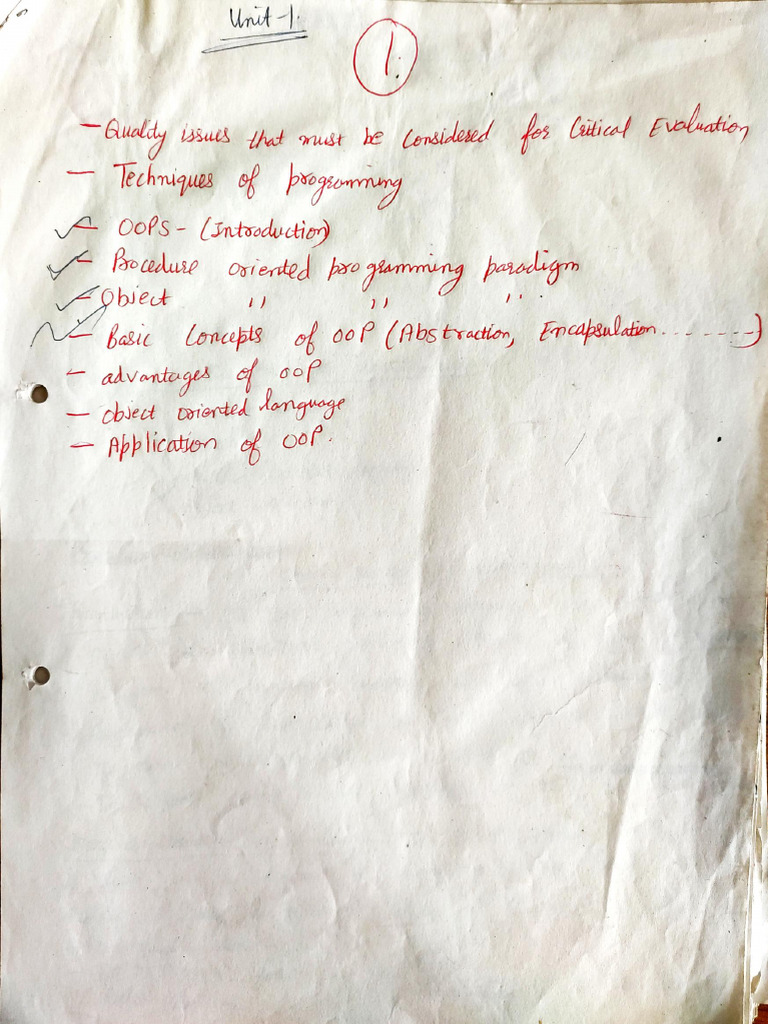 Unit-1.
1.
- Quality issues that must be considered for Critical Evaluation
- Techniques of programming
- OOPS - (Introduction)
- Procedure oriented programming paradigm
- Object " " "
- Basic Concepts of OOP (Abstraction, Encapsulation.......)
- advantages of OOP
- Object oriented language
- Application of OOP.